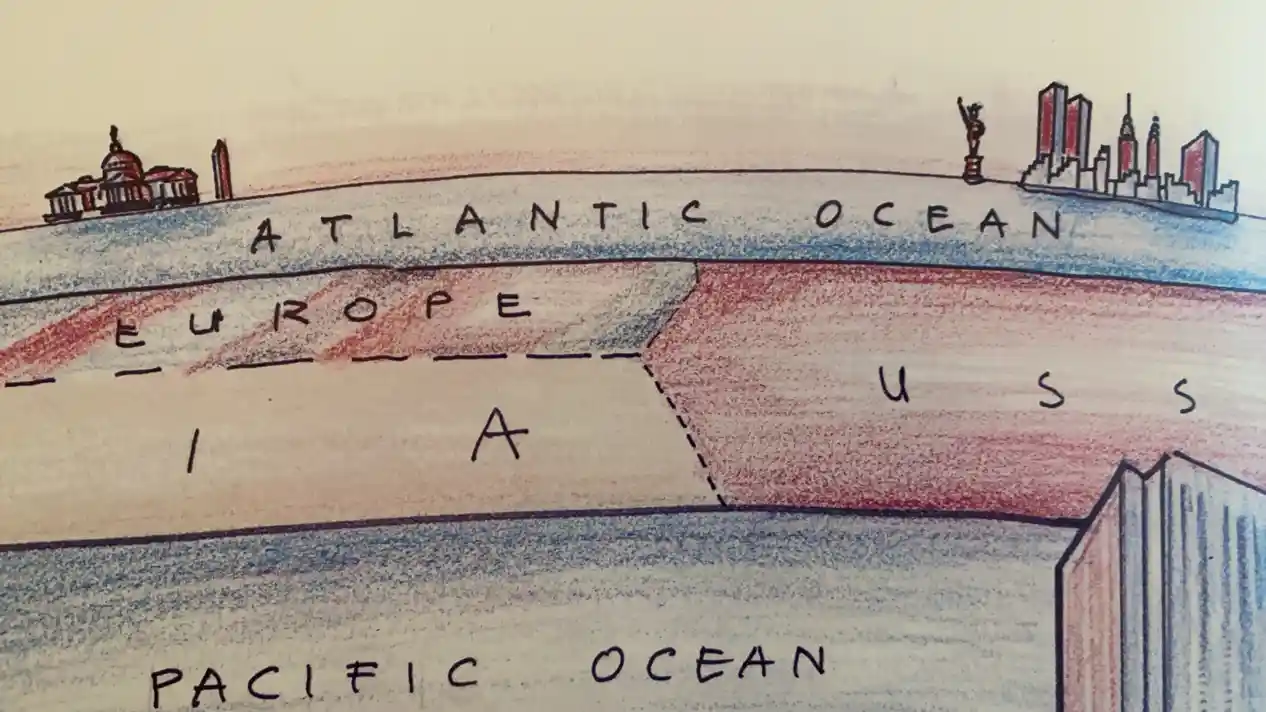 ATLANTIC OCEAN
EUROPE
USS
IA
PACIFIC OCEAN